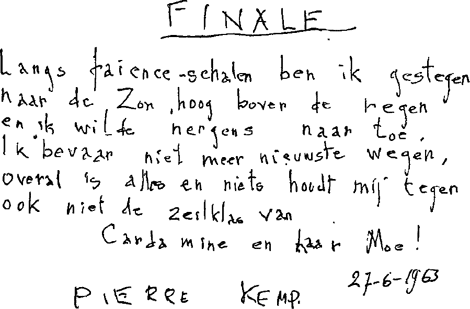 FINALE
Langs faience-schalen ben ik gestegen
naar de Zon, hoog boven de regen
en ik wilde nergens naar toe.
Ik bevaar niet meer nieuwste wegen,
overal is alles en niets houdt mij tegen
ook niet de zeilklas van
Cardamine en haar Moe!
27-6-1963
PIERRE KEMP.